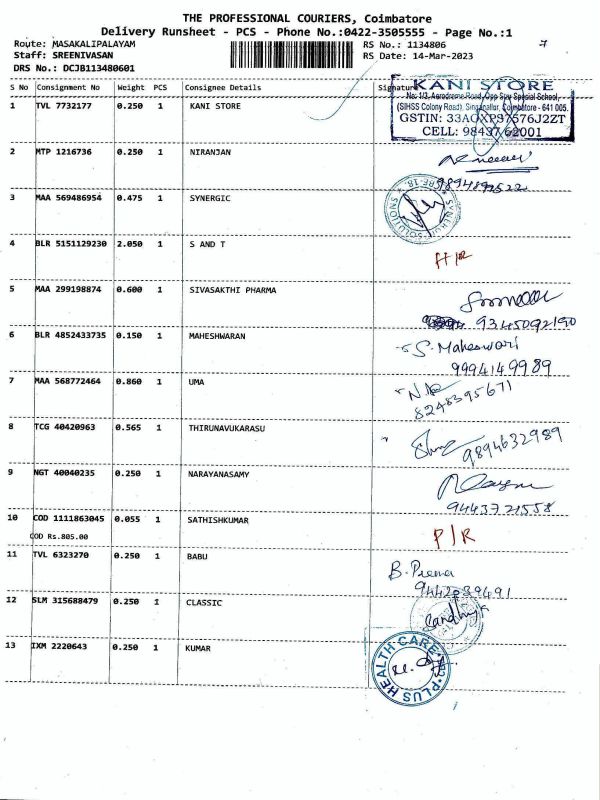 THE PROFESSIONAL COURIERS, Coimbatore
Delivery Runsheet - PCS - Phone No.:0422-3505555 - Page No.:1
Route: MASAKALIPALAYAM RS No.: 1134806 7
Staff: SREENIVASAN RS Date: 14-Mar-2023
DRS No.: DCJB113480601
S No Consignment No Weight PCS Consignee Details Signature
KANI STORE
No: 1/3, Aerodrome Road, Opp Stay Special School,
(SIHSS Colony Road), Singanallur, Coimbatore - 641 005.
GSTIN: 33AOXPS7576J2ZT
CELL: 98437 62001
1 TVL 7732177 0.250 1 KANI STORE
2 MTP 1216736 0.250 1 NIRANJAN
3 MAA 569486954 0.475 1 SYNERGIC
4 BLR 5151129230 2.050 1 S AND T
5 MAA 299198874 0.600 1 SIVASAKTHI PHARMA
9345092190
6 BLR 4852433735 0.150 1 MAHESHWARAN S. Maheswari
9994149989
7 MAA 568772464 0.860 1 UMA
8248395671
8 TCG 40420963 0.565 1 THIRUNAVUKARASU
9894632989
9 NGT 40040235 0.250 1 NARAYANASAMY
9443721558
10 COD 1111863045 0.055 1 SATHISHKUMAR P/R
COD Rs.805.00
11 TVL 6323270 0.250 1 BABU B. Prema
12 SLM 315688479 0.250 1 CLASSIC Sandhya
13 IXM 2220643 0.250 1 KUMAR
PLUS HEALTH CARE